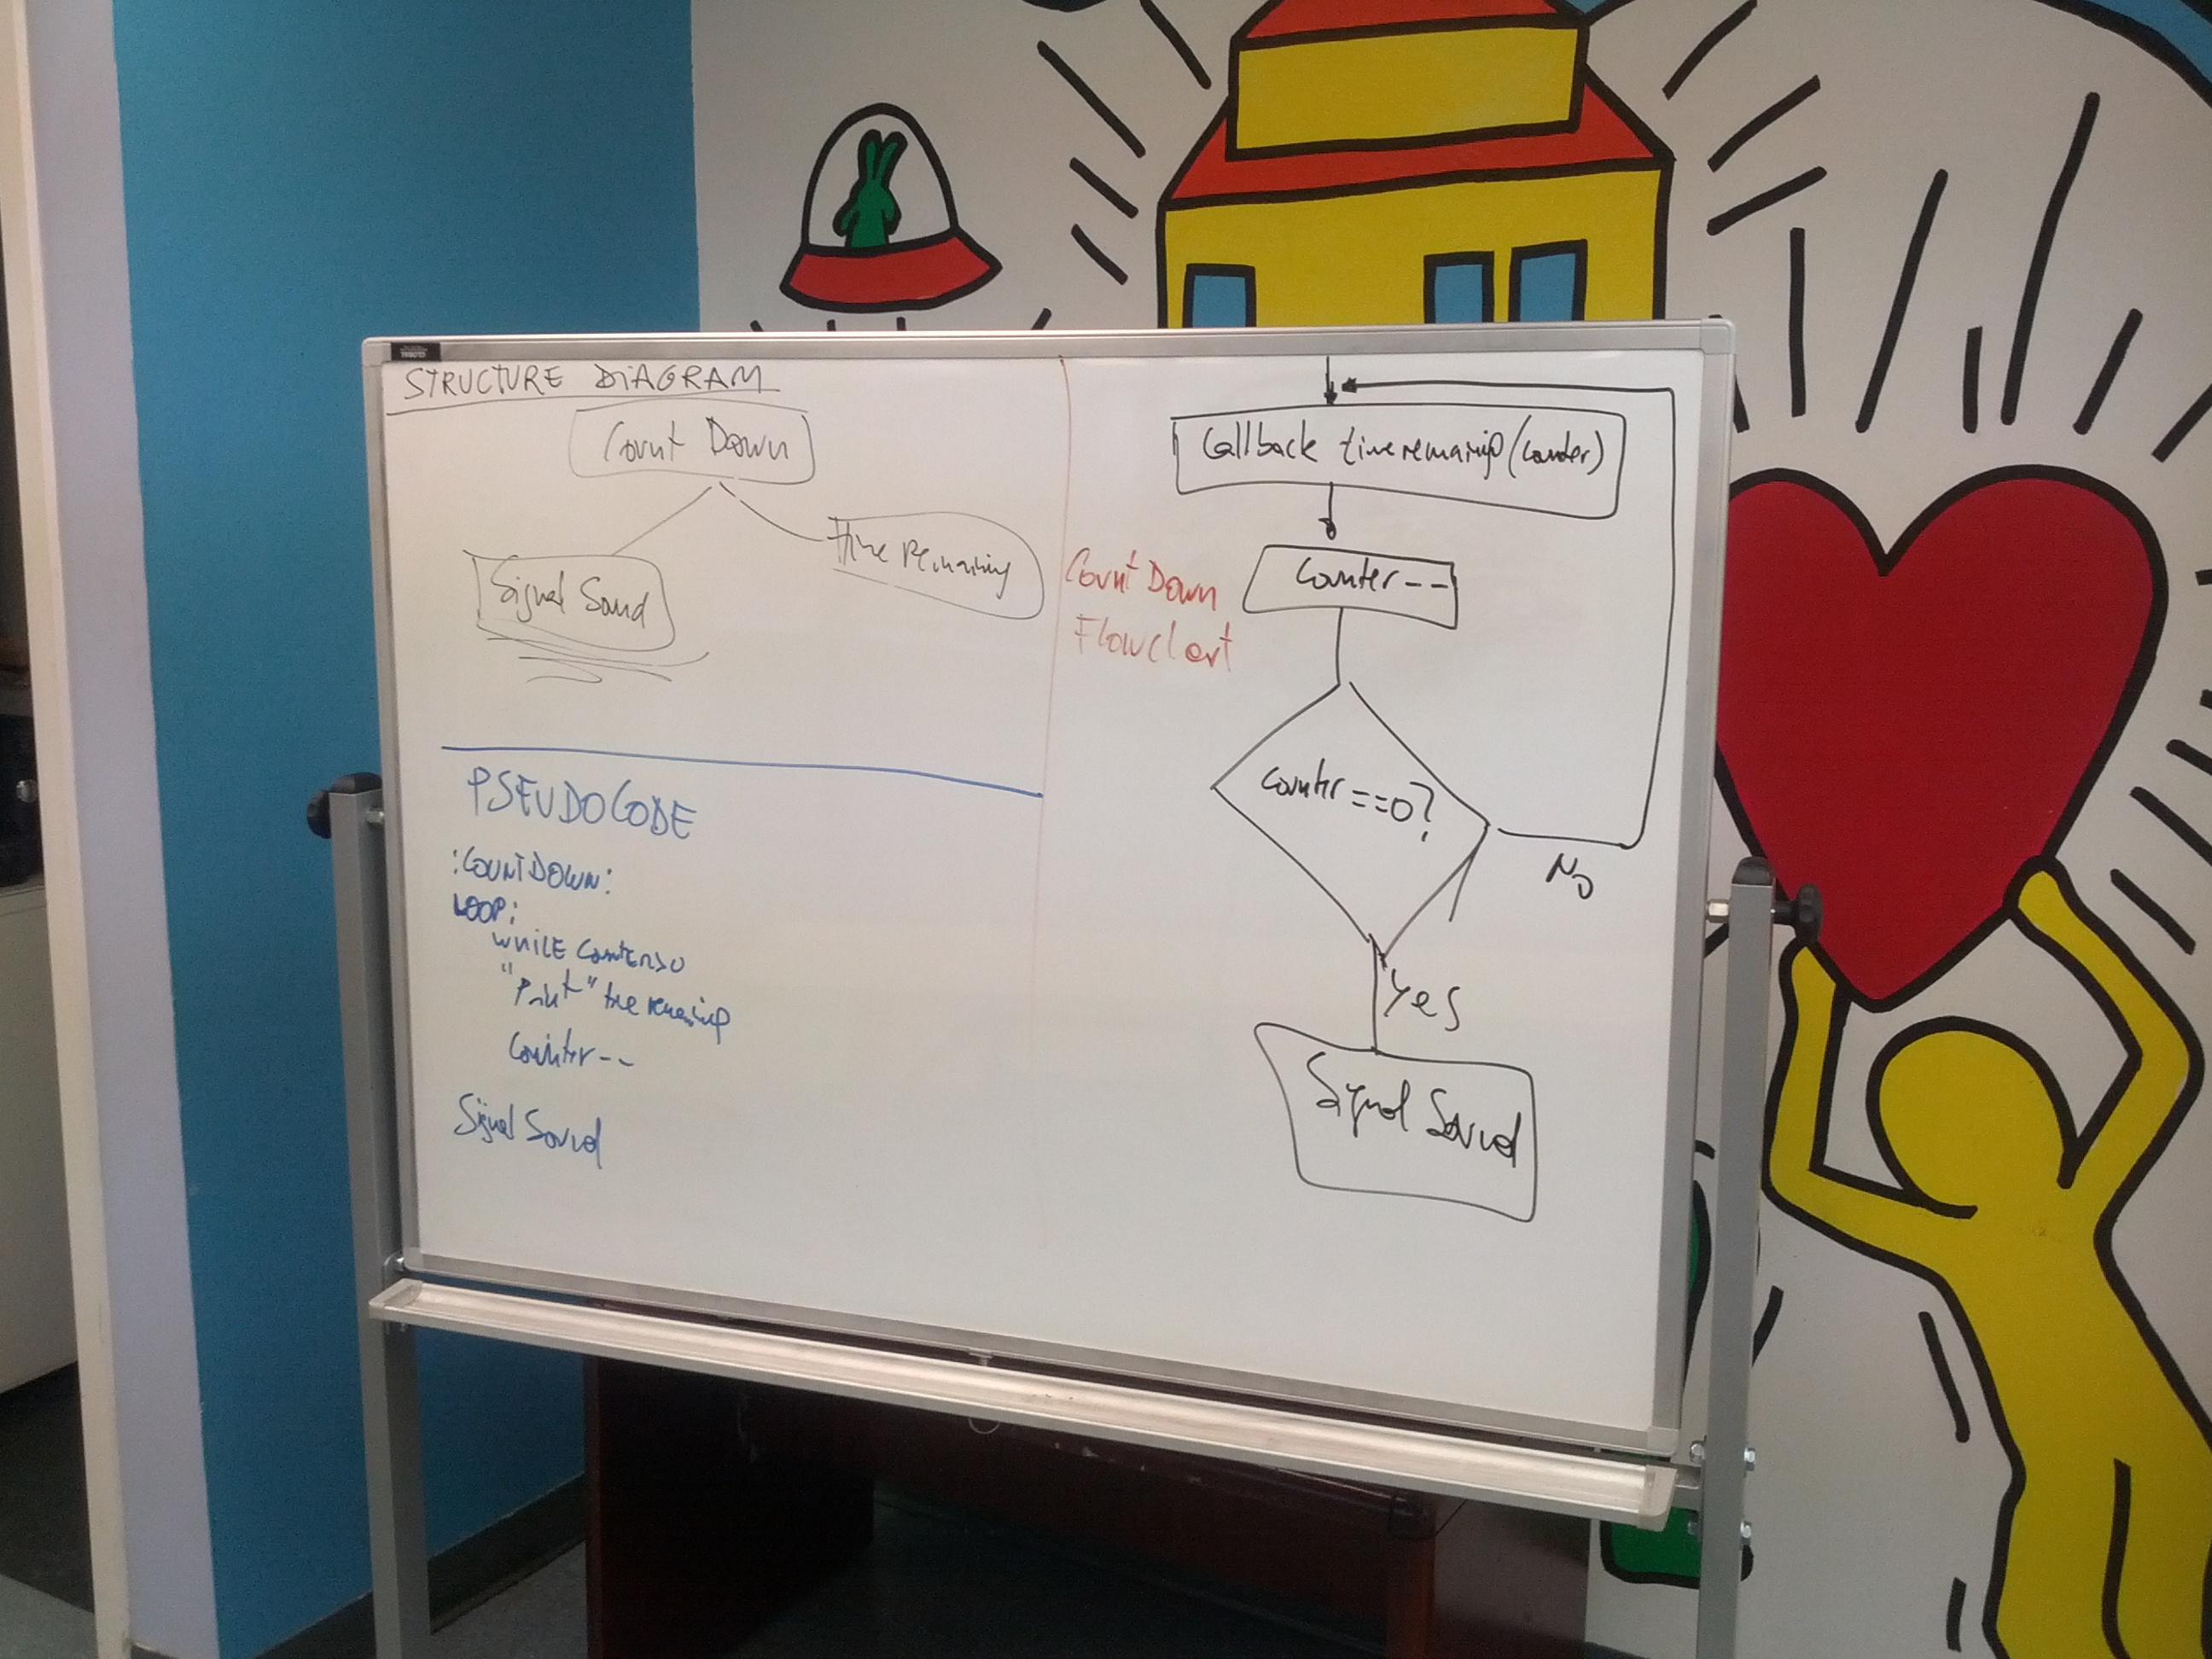 STRUCTURE DIAGRAM
Count Down
Signal Sound
time remaining
PSEUDOCODE
:COUNTDOWN:
LOOP:
WHILE COUNTER>0
"Print" time remaining
Counter--
Signal Sound
Count Down
Flowchart
Callback time remaining (counter)
Counter--
counter==0?
No
Yes
Signal Sound